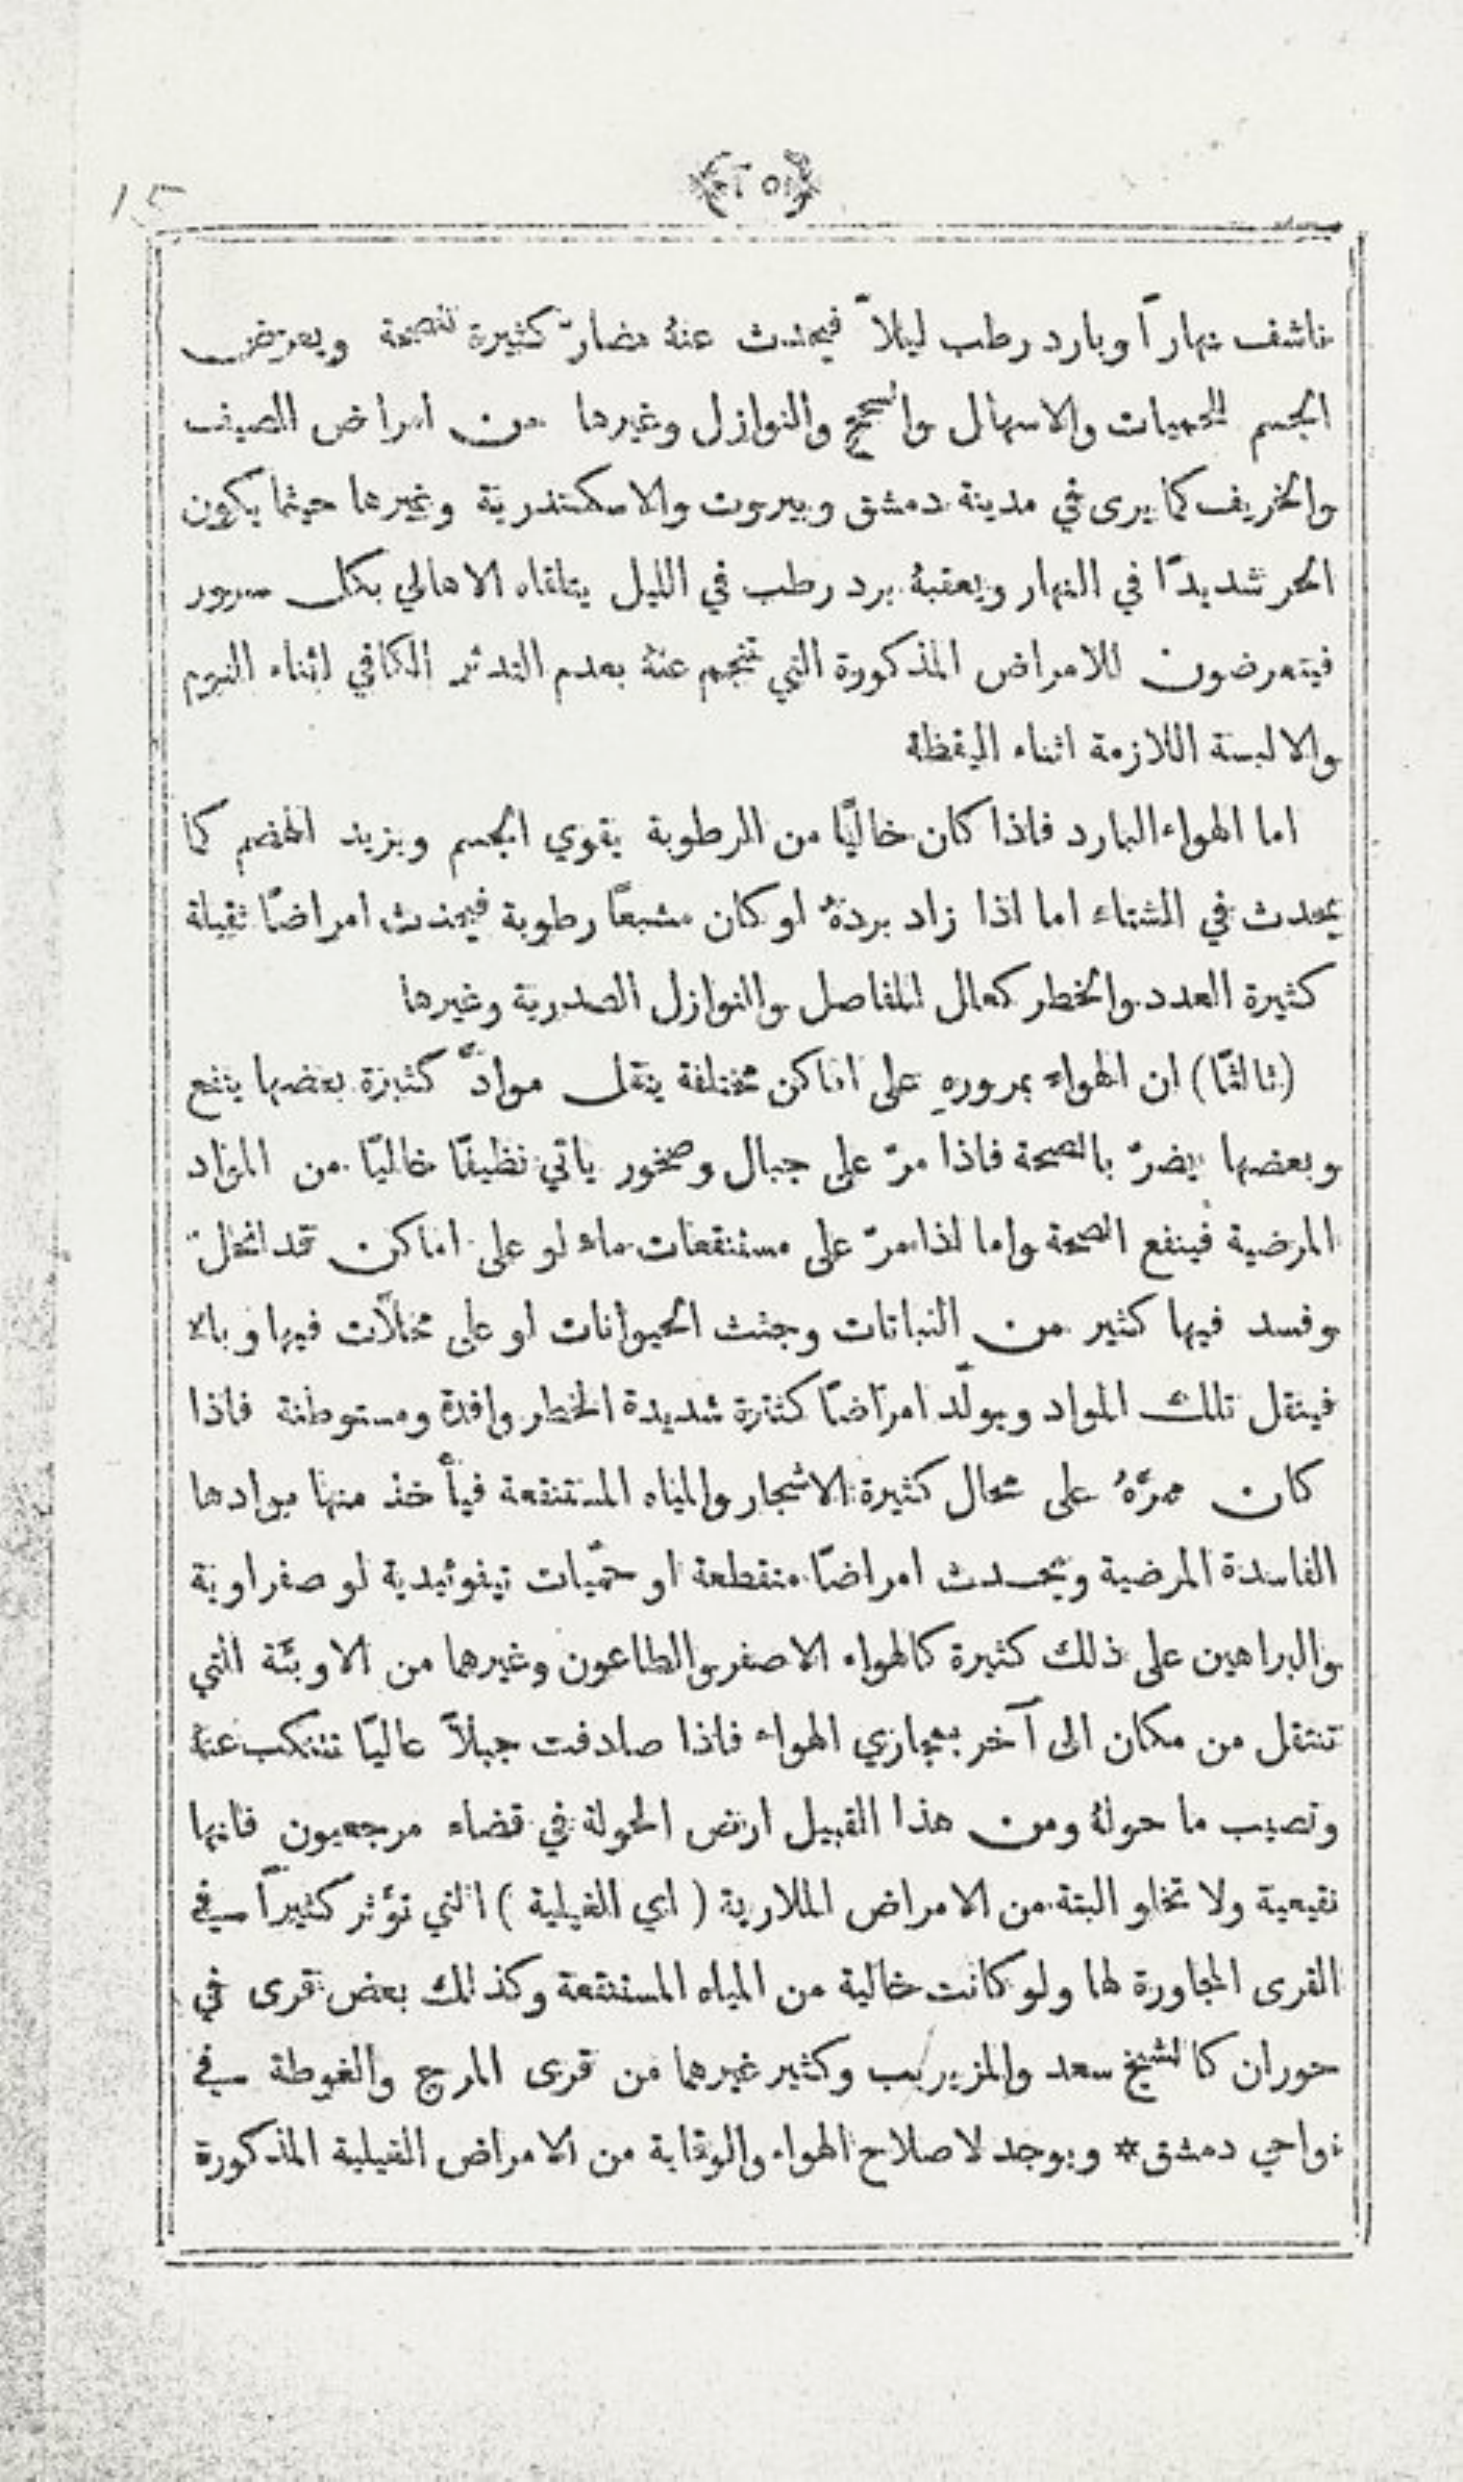 ناشف نهاراً وبارد رطب ليلاً فيحدث عنهُ مضارّ كثيرة للصحة ويعرض
الجسم للحميات والاسهال والسحج والنوازل وغيرها من امراض الصيف
والخريف كما يرى في مدينة دمشق وبيروت والاسكندرية وغيرها حيثما يكون
الحر شديدًا في النهار ويعقبهُ برد رطب في الليل يتلقاه الاهالي بكل سرور
فيتعرضون للامراض المذكورة التي تنجم عنهُ بعدم التدثر الكافي اثناء النوم
والالبسة اللازمة اثناء اليقظة
اما الهواء البارد فاذا كان خاليًا من الرطوبة يقوي الجسم ويزيد الهضم كما
يحدث في الشتاء اما اذا زاد بردهُ او كان مشبعًا رطوبة فيحدث امراضًا ثقيلة
كثيرة العدد والخطر كعلل المفاصل والنوازل الصدرية وغيرها
(ثالثًا) ان الهواء بمرورهِ على اماكن مختلفة ينقل موادّ كثيرة بعضها ينفع
وبعضها يضرّ بالصحة فاذا مرّ على جبال وصخور ياتي نظيفًا خاليًا من المواد
المرضية فينفع الصحة واما اذا مرّ على مستنقعات ماء او على اماكن قد انحلّ
وفسد فيها كثير من النباتات وجثث الحيوانات او على محلاّت فيها وبالا
فينقل تلك المواد ويولّد امراضًا كثيرة شديدة الخطر وافدة ومستوطنة فاذا
كان ممرّهُ على محال كثيرة الاشجار والمياه المستنقعة فيأخذ منها موادها
الفاسدة المرضية ويحدث امراضًا متقطعة او حمّيات تيفوئيدية او صفراوية
والبراهين على ذلك كثيرة كالهواء الاصفر والطاعون وغيرهما من الاوبئة التي
تنتقل من مكان الى آخر بمجازي الهواء فاذا صادفت جبلاً عاليًا تتنكب عنهُ
وتصيب ما حولهُ ومن هذا القبيل ارض الحولة في قضاء مرجعيون فانها
نقيعية ولا تخلو البتة من الامراض الملارية ( اي الغيلية ) التي تؤثر كثيراً في
القرى المجاورة لها ولو كانت خالية من المياه المستنقعة وكذلك بعض قرى في
حوران كالشيخ سعد والمزيريب وكثير غيرهما من قرى المرج والغوطة في
نواحي دمشق * ويوجد لاصلاح الهواء والوقاية من الامراض الغيلية المذكورة